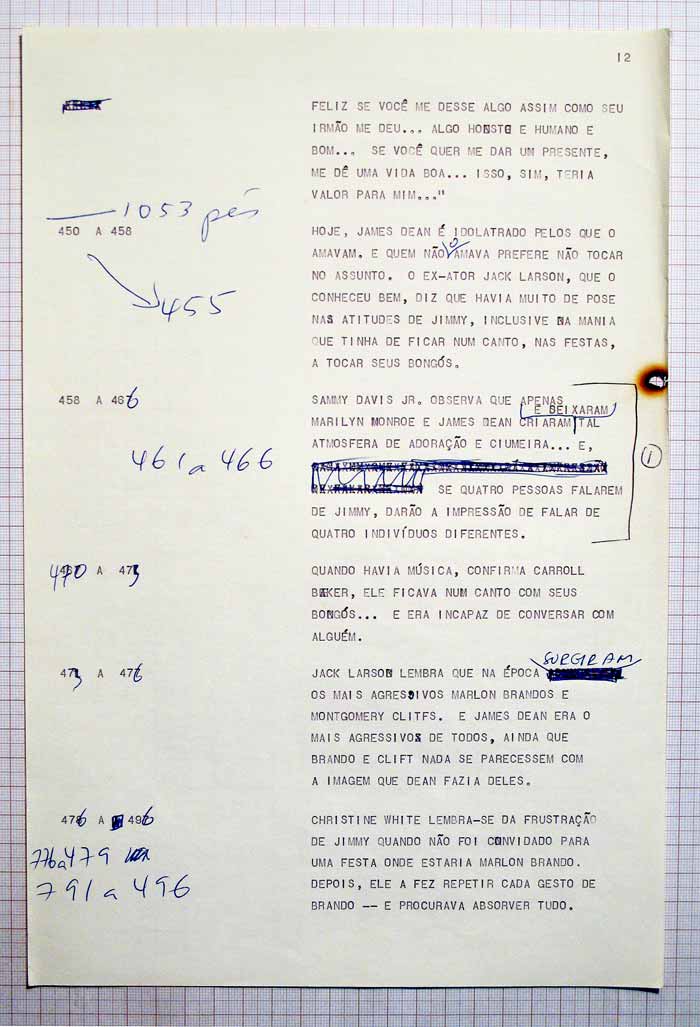 12
FELIZ SE VOCÊ ME DESSE ALGO ASSIM COMO SEU
IRMÃO ME DEU... ALGO HONSTE E HUMANO E
BOM... SE VOCÊ QUER ME DAR UM PRESENTE,
ME DÊ UMA VIDA BOA... ISSO, SIM, TERIA
VALOR PARA MIM..."
1053 pés
450 A 458
455
HOJE, JAMES DEAN É IDOLATRADO PELOS QUE O
AMAVAM. E QUEM NÃO O AMAVA PREFERE NÃO TOCAR
NO ASSUNTO. O EX-ATOR JACK LARSON, QUE O
CONHECEU BEM, DIZ QUE HAVIA MUITO DE POSE
NAS ATITUDES DE JIMMY, INCLUSIVE NA MANIA
QUE TINHA DE FICAR NUM CANTO, NAS FESTAS,
A TOCAR SEUS BONGÓS.
458 A 466
461 a 466
SAMMY DAVIS JR. OBSERVA QUE APENAS
MARILYN MONROE E JAMES DEAN CRIARAM E DEIXARAM TAL
ATMOSFERA DE ADORAÇÃO E CIUMEIRA... E,
SE QUATRO PESSOAS FALAREM
DE JIMMY, DARÃO A IMPRESSÃO DE FALAR DE
QUATRO INDIVÍDUOS DIFERENTES.
1
470 A 473
QUANDO HAVIA MÚSICA, CONFIRMA CARROLL
BAKER, ELE FICAVA NUM CANTO COM SEUS
BONGÓS... E ERA INCAPAZ DE CONVERSAR COM
ALGUÉM.
473 A 476
JACK LARSON LEMBRA QUE NA ÉPOCA SURGIRAM
OS MAIS AGRESSIVOS MARLON BRANDOS E
MONTGOMERY CLITFS. E JAMES DEAN ERA O
MAIS AGRESSIVO DE TODOS, AINDA QUE
BRANDO E CLIFT NADA SE PARECESSEM COM
A IMAGEM QUE DEAN FAZIA DELES.
476 A 496
776 a 479
791 a 496
CHRISTINE WHITE LEMBRA-SE DA FRUSTRAÇÃO
DE JIMMY QUANDO NÃO FOI CONVIDADO PARA
UMA FESTA ONDE ESTARIA MARLON BRANDO.
DEPOIS, ELE A FEZ REPETIR CADA GESTO DE
BRANDO -- E PROCURAVA ABSORVER TUDO.